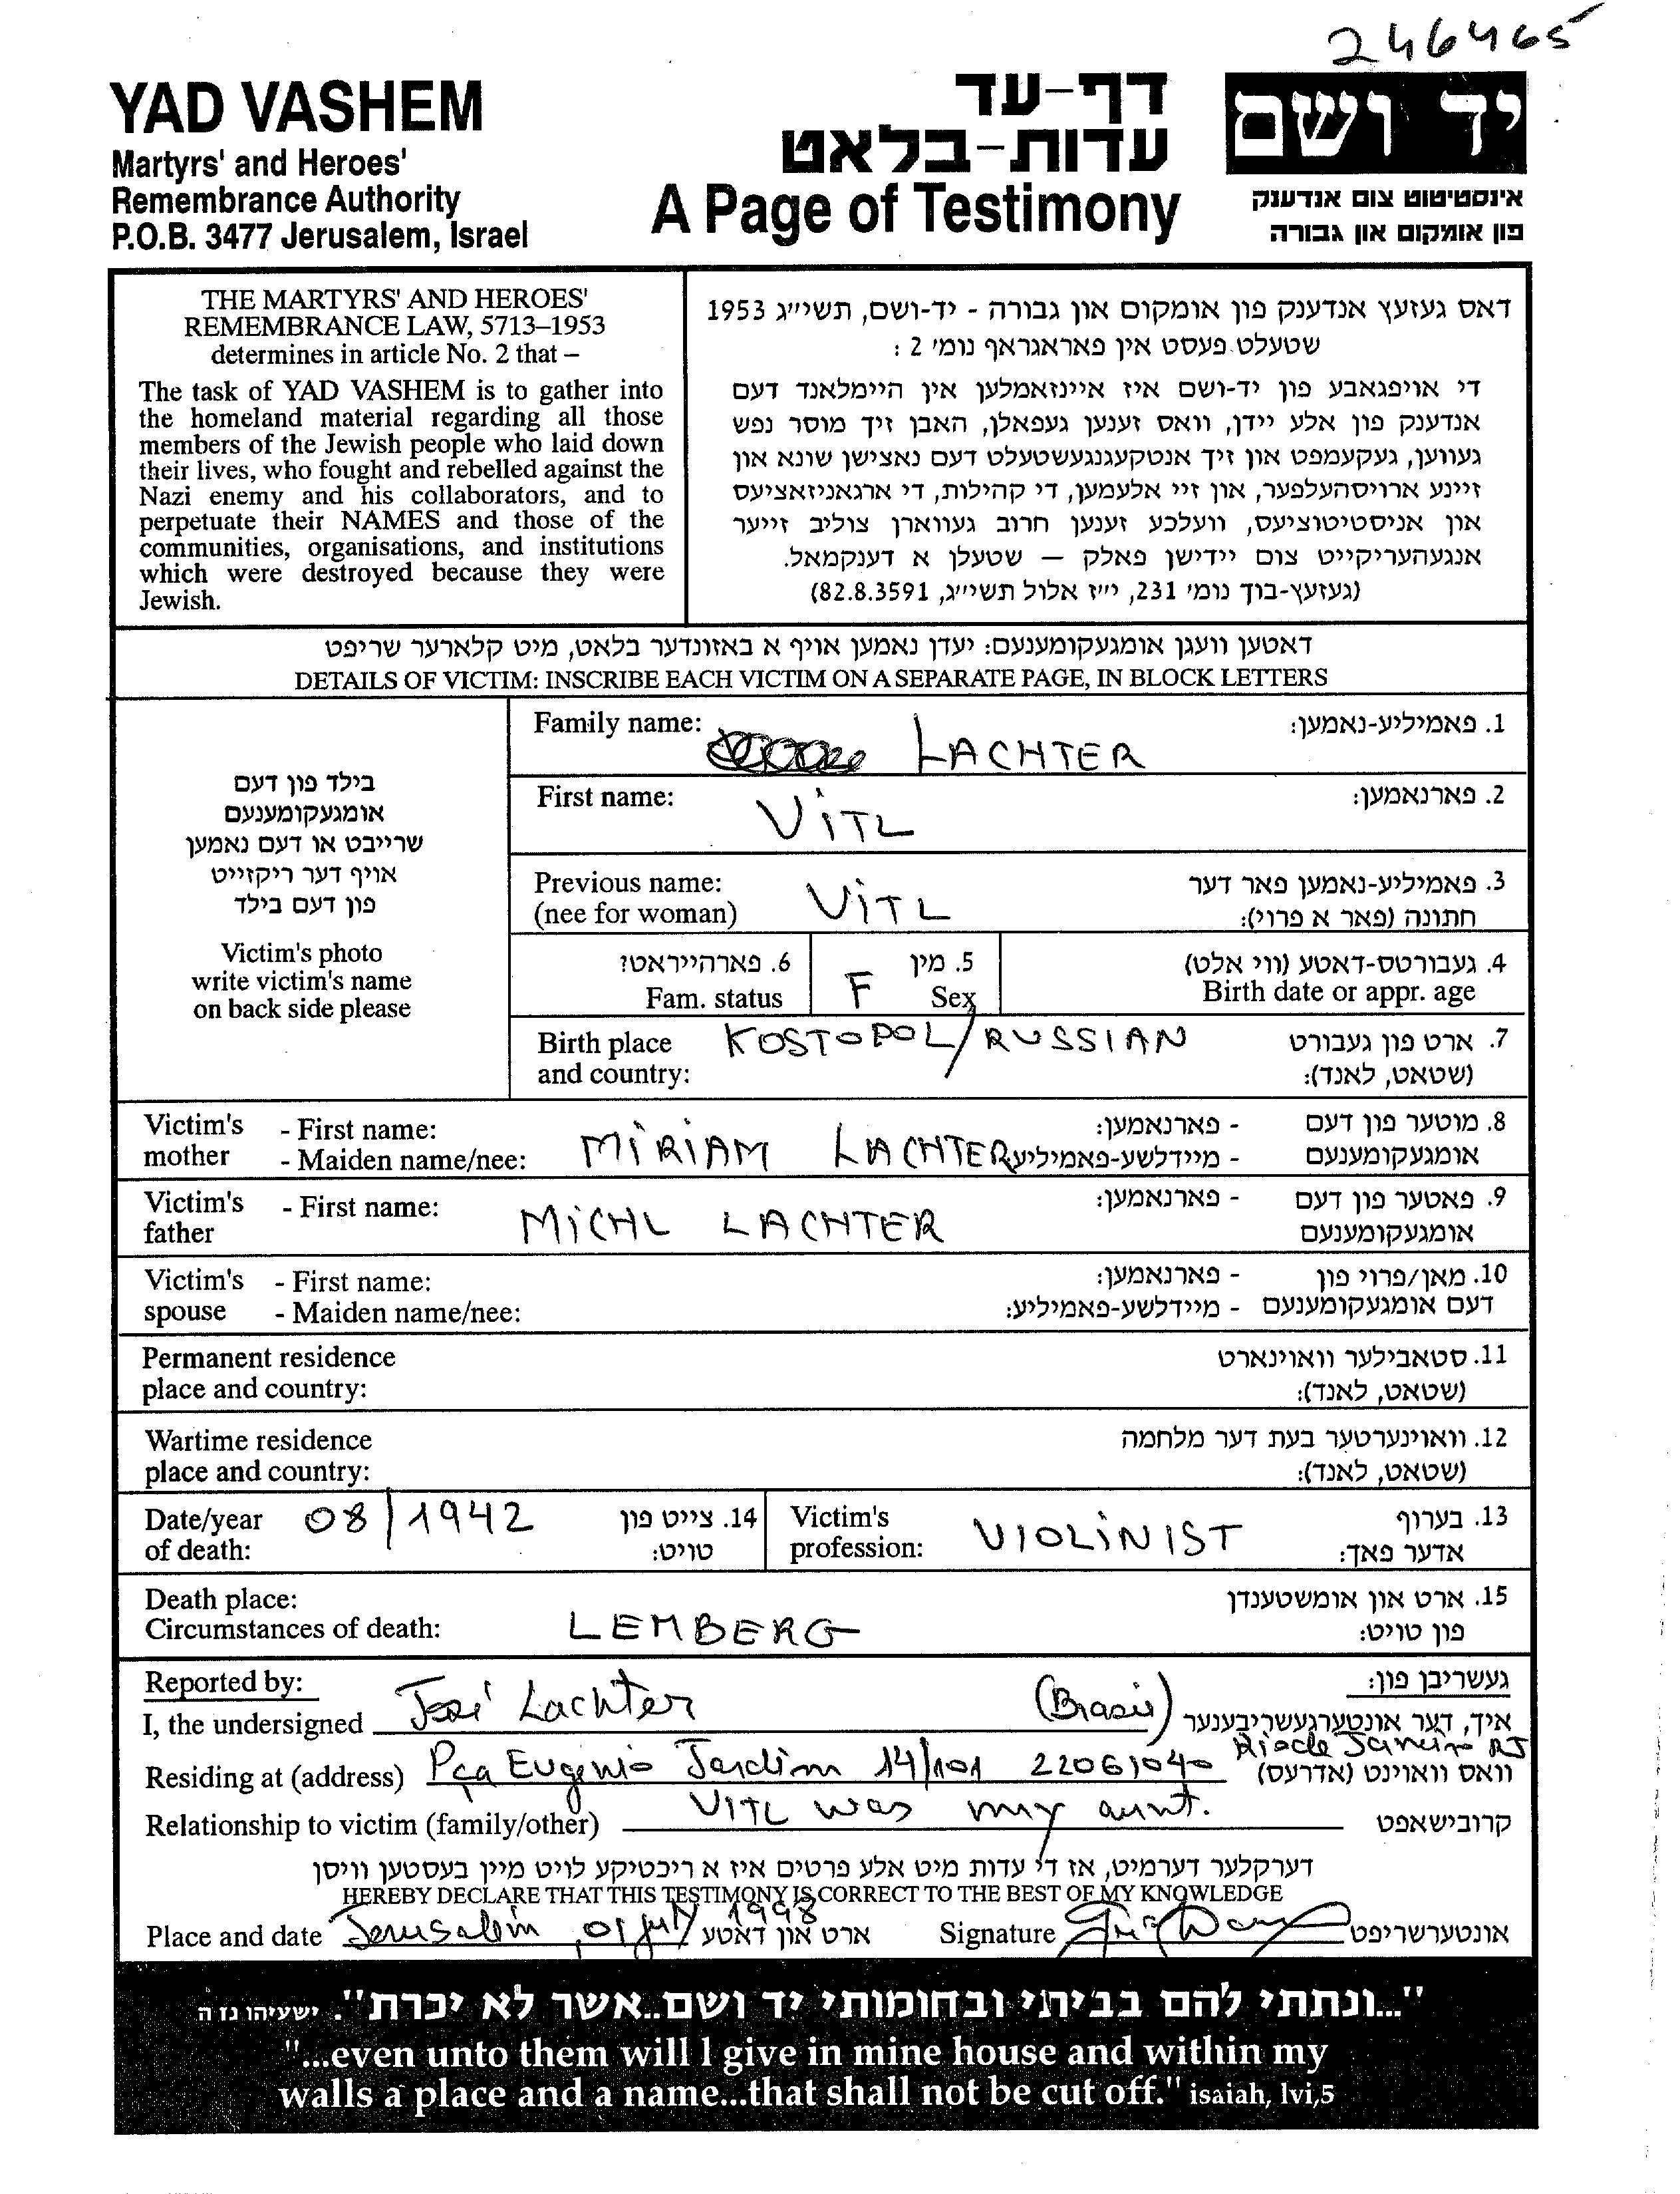 246465
YAD VASHEM
Martyrs' and Heroes'
Remembrance Authority
P.O.B. 3477 Jerusalem, Israel
דף-עד
עדות-בלאט
A Page of Testimony
יד ושם
אינסטיטוט צום אנדענק
פון אומקום און גבורה
THE MARTYRS' AND HEROES'
REMEMBRANCE LAW, 5713–1953
determines in article No. 2 that –
The task of YAD VASHEM is to gather into
the homeland material regarding all those
members of the Jewish people who laid down
their lives, who fought and rebelled against the
Nazi enemy and his collaborators, and to
perpetuate their NAMES and those of the
communities, organisations, and institutions
which were destroyed because they were
Jewish.
דאס געזעץ אנדענק פון אומקום און גבורה - יד-ושם, תשי״ג 1953
שטעלט פעסט אין פאראגראף נומ׳ 2 :
די אויפגאבע פון יד-ושם איז איינזאמלען אין היימלאנד דעם
אנדענק פון אלע יידן, וואס זענען געפאלן, האבן זיך מוסר נפש
געווען, געקעמפט און זיך אנטקעגנגעשטעלט דעם נאצישן שונא און
זיינע ארויסהעלפער, און זיי אלעמען, די קהילות, די ארגאניזאציעס
און אניסטיטוציעס, וועלכע זענען חרוב געווארן צוליב זייער
אנגעהעריקייט צום יידישן פאלק — שטעלן א דענקמאל.
(געזעץ-בוך נומ׳ 231, י״ז אלול תשי״ג, 82.8.3591)
דאטען וועגן אומגעקומענעם: יעדן נאמען אויף א באזונדער בלאט, מיט קלארער שריפט
DETAILS OF VICTIM: INSCRIBE EACH VICTIM ON A SEPARATE PAGE, IN BLOCK LETTERS
בילד פון דעם
אומגעקומענעם
שרייבט או דעם נאמען
אויף דער ריקזייט
פון דעם בילד
Victim's photo
write victim's name
on back side please
Family name: LACHTER 1. פאמיליע-נאמען:
First name: VITL 2. פארנאמען:
Previous name: VITL 3. פאמיליע-נאמען פאר דער
(nee for woman) חתונה (פאר א פרוי):
6. פארהייראט? 5. מין 4. געבורטס-דאטע (ווי אלט)
Fam. status F Sex Birth date or appr. age
Birth place KOSTOPOL/RUSSIAN 7. ארט פון געבורט
and country: (שטאט, לאנד):
Victim's - First name: - פארנאמען: 8. מוטער פון דעם
mother - Maiden name/nee: MIRIAM LACHTER - מיידלשע-פאמיליע אומגעקומענעם
Victim's - First name: - פארנאמען: 9. פאטער פון דעם
father MICHL LACHTER אומגעקומענעם
Victim's - First name: - פארנאמען: 10. מאן/פרוי פון
spouse - Maiden name/nee: - מיידלשע-פאמיליע: דעם אומגעקומענעם
Permanent residence 11. סטאבילער וואוינארט
place and country: (שטאט, לאנד):
Wartime residence 12. וואוינערטער בעת דער מלחמה
place and country: (שטאט, לאנד):
Date/year 08/1942 14. צייט פון Victim's VIOLINIST 13. בערוף
of death: טויט: profession: אדער פאך:
Death place: 15. ארט און אומשטענדן
Circumstances of death: LEMBERG פון טויט:
Reported by: געשריבן פון:
I, the undersigned José Lachter (Brasil) איך, דער אונטערגעשריבענער
Rio de Janeiro RJ
Residing at (address) Pça Eugênio Jardim 14/101 22061040 וואס וואוינט (אדרעס)
Relationship to victim (family/other) VITL was my aunt. קרובישאפט
דערקלער דערמיט, אז די עדות מיט אלע פרטים איז א ריכטיקע לויט מיין בעסטען וויסן
HEREBY DECLARE THAT THIS TESTIMONY IS CORRECT TO THE BEST OF MY KNOWLEDGE
Place and date Jerusalem, 01 july 1998 ארט און דאטע Signature אונטערשריפט
"...ונתתי להם בביתי ובחומותי יד ושם..אשר לא יכרת". ישעיהו נז ה
"...even unto them will I give in mine house and within my
walls a place and a name...that shall not be cut off." isaiah, lvi,5